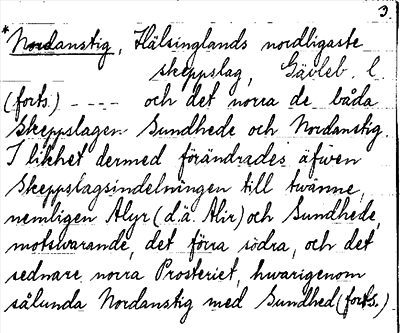 3.
*Nordanstig, Hälsinglands nordligaste
skeppslag, Gävleb. l.
(forts.) ---- och det norra de båda
Skeppslagen Sundhede och Nordanstig.
I likhet dermed förändrades äfwen
Skeppslagsindelningen till twänne,
nemligen Alyr (d.ä. Alir) och Sundhede,
motswarande, det förra södra, och det
sednare norra Prosteriet, hwarigenom
sålunda Nordanstig med Sundhed (forts.)